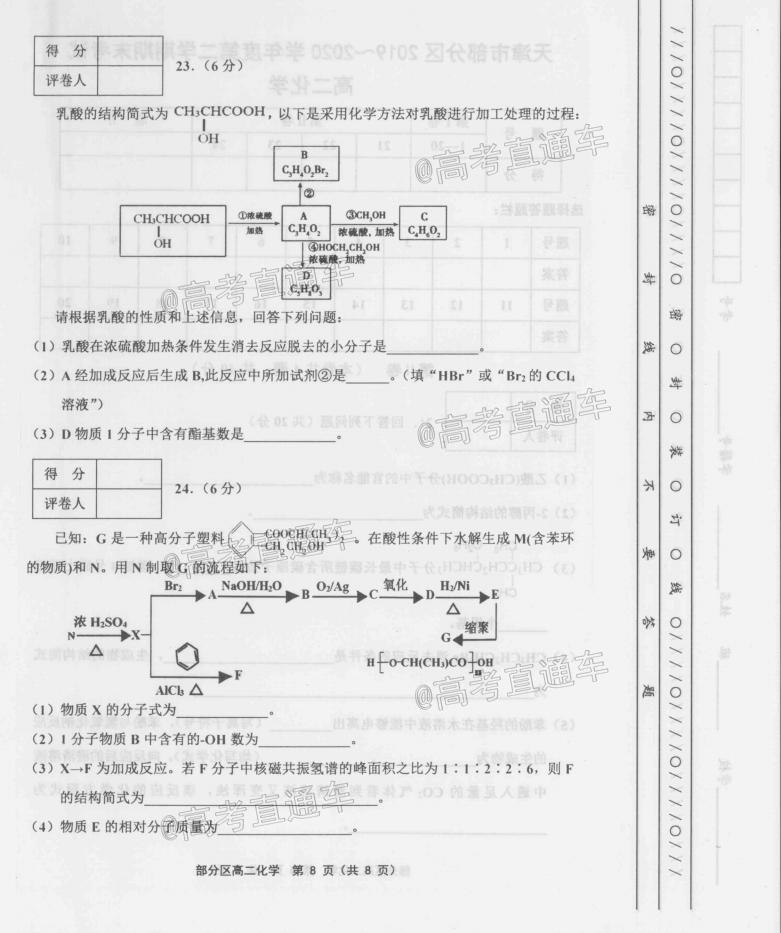 得 分
评卷人
23．（6 分）
乳酸的结构简式为 CH₃CHCOOH，以下是采用化学方法对乳酸进行加工处理的过程：
OH
B
C₃H₄O₂Br₂
②
CH₃CHCOOH
OH
①浓硫酸
加热
A
C₃H₄O₂
③CH₃OH
浓硫酸，加热
C
C₄H₆O₂
④HOCH₂CH₂OH
浓硫酸，加热
D
C₅H₈O₃
请根据乳酸的性质和上述信息，回答下列问题：
（1）乳酸在浓硫酸加热条件发生消去反应脱去的小分子是________。
（2）A 经加成反应后生成 B,此反应中所加试剂②是______。（填“HBr”或“Br₂ 的 CCl₄
溶液”）
（3）D 物质 1 分子中含有酯基数是________。
得 分
评卷人
24．（6 分）
已知：G 是一种高分子塑料，
COOCH(CH₃)₂
CH₂CH₂OH
。在酸性条件下水解生成 M(含苯环
的物质)和 N。用 N 制取 G 的流程如下：
Br₂ A NaOH/H₂O △ B O₂/Ag C 氧化 D H₂/Ni △ E
浓 H₂SO₄
N △ X
缩聚
G
H[O-CH(CH₃)CO]ₙOH
F
AlCl₃ △
（1）物质 X 的分子式为________。
（2）1 分子物质 B 中含有的-OH 数为________。
（3）X→F 为加成反应。若 F 分子中核磁共振氢谱的峰面积之比为 1∶1∶2∶2∶6，则 F
的结构简式为________________。
（4）物质 E 的相对分子质量为________。
部分区高二化学 第 8 页（共 8 页）
密 封 线 内 不 要 答 题
密 ○ 封 ○ 装 ○ 订 ○ 线
@高考直通车
@高考直通车
@高考直通车
@高考直通车
@高考直通车
@高考直通车